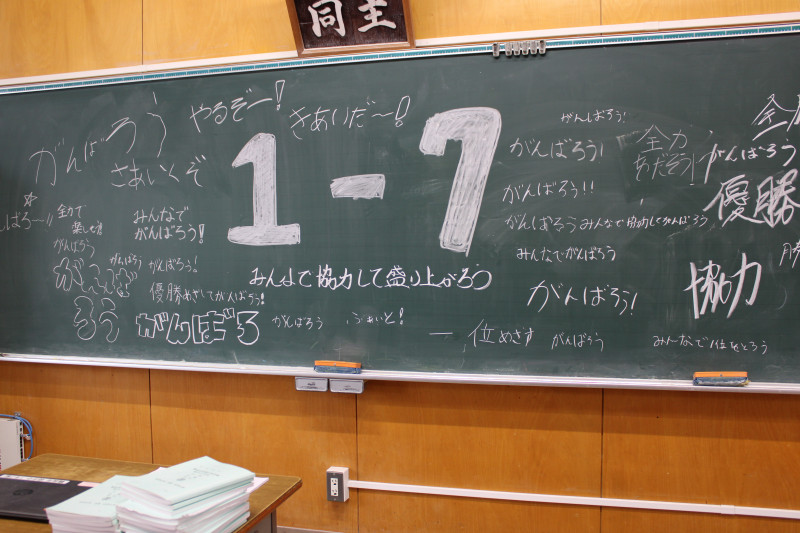 同 主
がんばろう
やるぞー!
きあいだ〜!
さあいくぞ
1-7
がんばろう!
がんばろう!
がんばろう!!
がんばるう
みんなで協力してがんばろう
みんなでがんばろう
がんばろう!
全力
がんばろう
全力
優勝
協力
全力で
がんばろう
みんなで
がんばろう!
がんばろう
がんばろう!
優勝めざしてがんばろう!
みんなで協力して盛り上がろう
がんばろう
がんばろう
ふぁいと!
一位めざす
がんばろう
みんなで1位をとろう